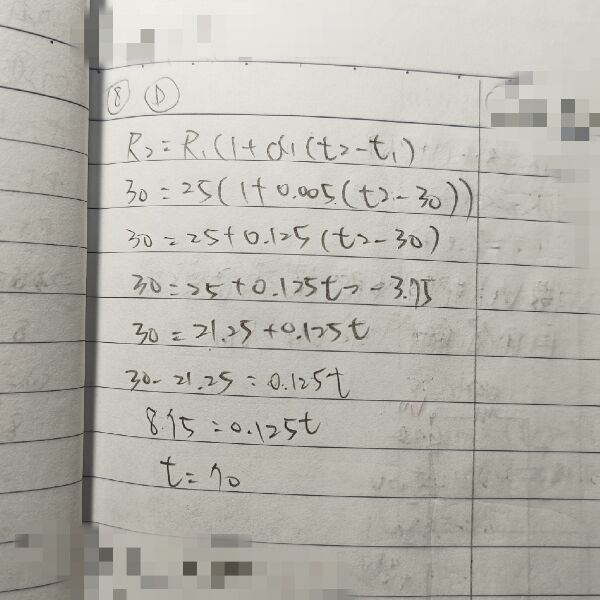 ⑧ Ⓓ
R₂=R₁(1+α₁(t₂-t₁)
30=25(1+0.005(t₂-30))
30=25+0.125(t₂-30)
30=25+0.125t₂-3.75
30=21.25+0.125t
30-21.25=0.125t
8.75=0.125t
t=70